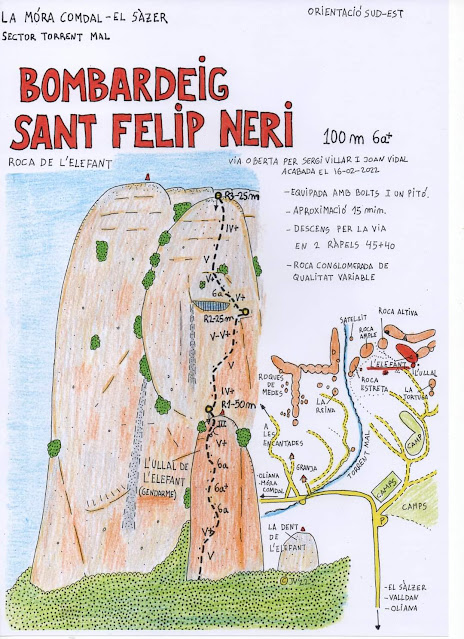 LA MÓRA COMDAL - EL SÀZER
SECTOR TORRENT MAL
ORIENTACIÓ SUD-EST
BOMBARDEIG
SANT FELIP NERI
100 m 6a+
ROCA DE L'ELEFANT
VIA OBERTA PER SERGI VILLAR I JOAN VIDAL
ACABADA EL 16-02-2022
- EQUIPADA AMB BOLTS I UN PITÓ.
- APROXIMACIÓ 15 mim.
- DESCENS PER LA VIA
EN 2 RÀPELS 45+40
- ROCA CONGLOMERADA DE
QUALITAT VARIABLE
R3-25m
IV+
V
V+
6a
V+
R2-25m
V-V+
V
IV+
R1-50m
III
V+
6a
6a+
6a
V+
V
L'ULLAL DE
L'ELEFANT
(GENDARME)
LA DENT
DE
L'ELEFANT
V
SATEL·LIT
ROCA ALTIVA
ROCA
AMPLE
L'ELEFANT
L'ULLAL
ROCA
ESTRETA
LA
TORTUGA
ROQUES
DE
MEDES
LA
REINA
A
LES
ENCANTADES
GRANJA
TORRENT MAL
CAMP
CAMPS
CAMPS
- OLIANA
- MÓRA
COMDAL
P
- EL SÀLZER
- VALLDAN
- OLIANA